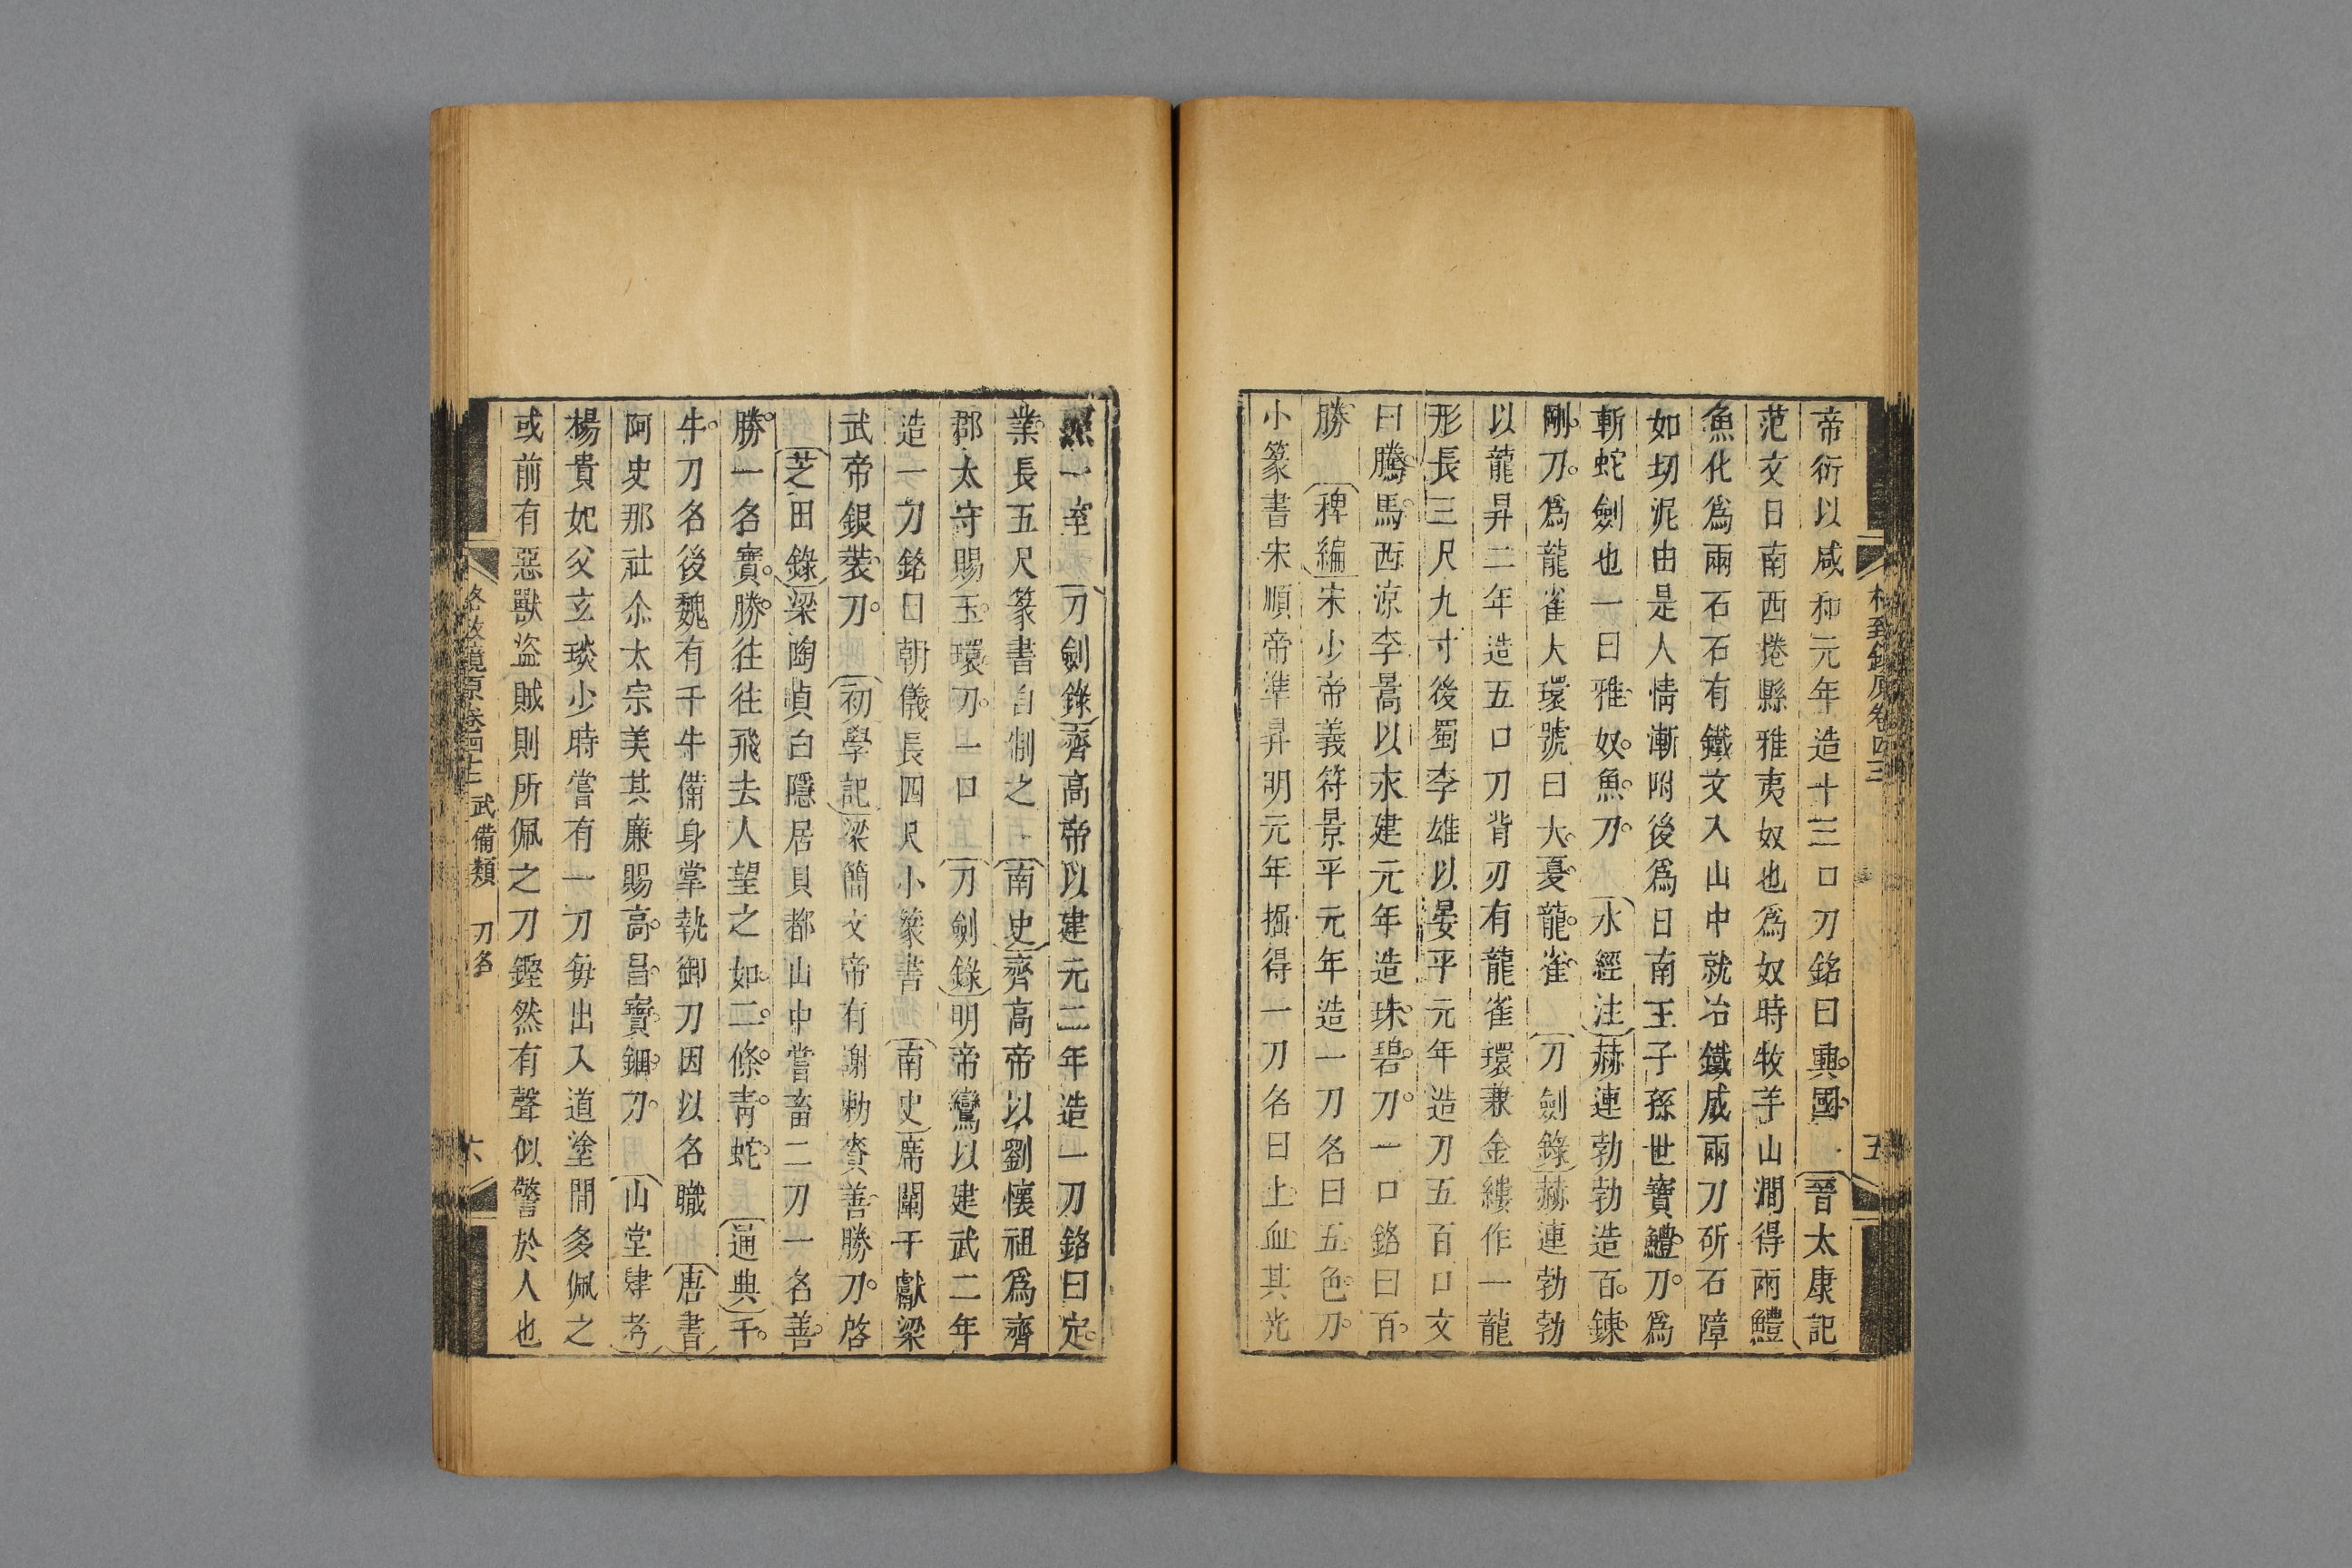 帝衍以咸和元年造十三口刀銘曰興國 晉太康記
范文日南西捲縣雅夷奴也為奴時牧羊山澗得兩鱧
魚化為兩石石有鐵文入山中就冶鐵成兩刀斫石障
如切泥由是人情漸附後為日南王子孫世寶鱧刀為
斬蛇劍也一曰雅奴魚刀 水經注赫連勃勃造百鍊
剛刀為龍雀大環號曰大夏龍雀 刀劍錄赫連勃勃
以龍昇二年造五口刀背刃有龍雀環兼金縷作一龍
形長三尺九寸後蜀李雄以晏平元年造刀五百口文
曰騰馬西涼李暠以永建元年造珠碧刀一口銘曰百
勝 稗編宋少帝義符景平元年造一刀名曰五色刀
小篆書宋順帝準昇明元年掘得一刀名曰上血其光
照一室 刀劍錄齊高帝以建元二年造一刀銘曰定
業長五尺篆書自制之 南史齊高帝以劉懷祖為齊
郡太守賜玉環刀一口 刀劍錄明帝鸞以建武二年
造一刀銘曰朝儀長四尺小篆書 南史席闡干獻梁
武帝銀裝刀 初學記梁簡文帝有謝勑賚善勝刀啓
芝田錄梁陶貞白隱居貝都山中嘗畜二刀一名善
勝一名寶勝往往飛去人望之如二條青蛇 通典千
牛刀名後魏有千牛備身掌執御刀因以名職 唐書
阿史那社尒太宗美其廉賜高昌寶鈿刀 山堂肆考
楊貴妃父玄琰少時嘗有一刀每出入道塗間多佩之
或前有惡獸盜賊則所佩之刀鏗然有聲似警於人也
格致鏡原卷四十二 武備類 刀名 六